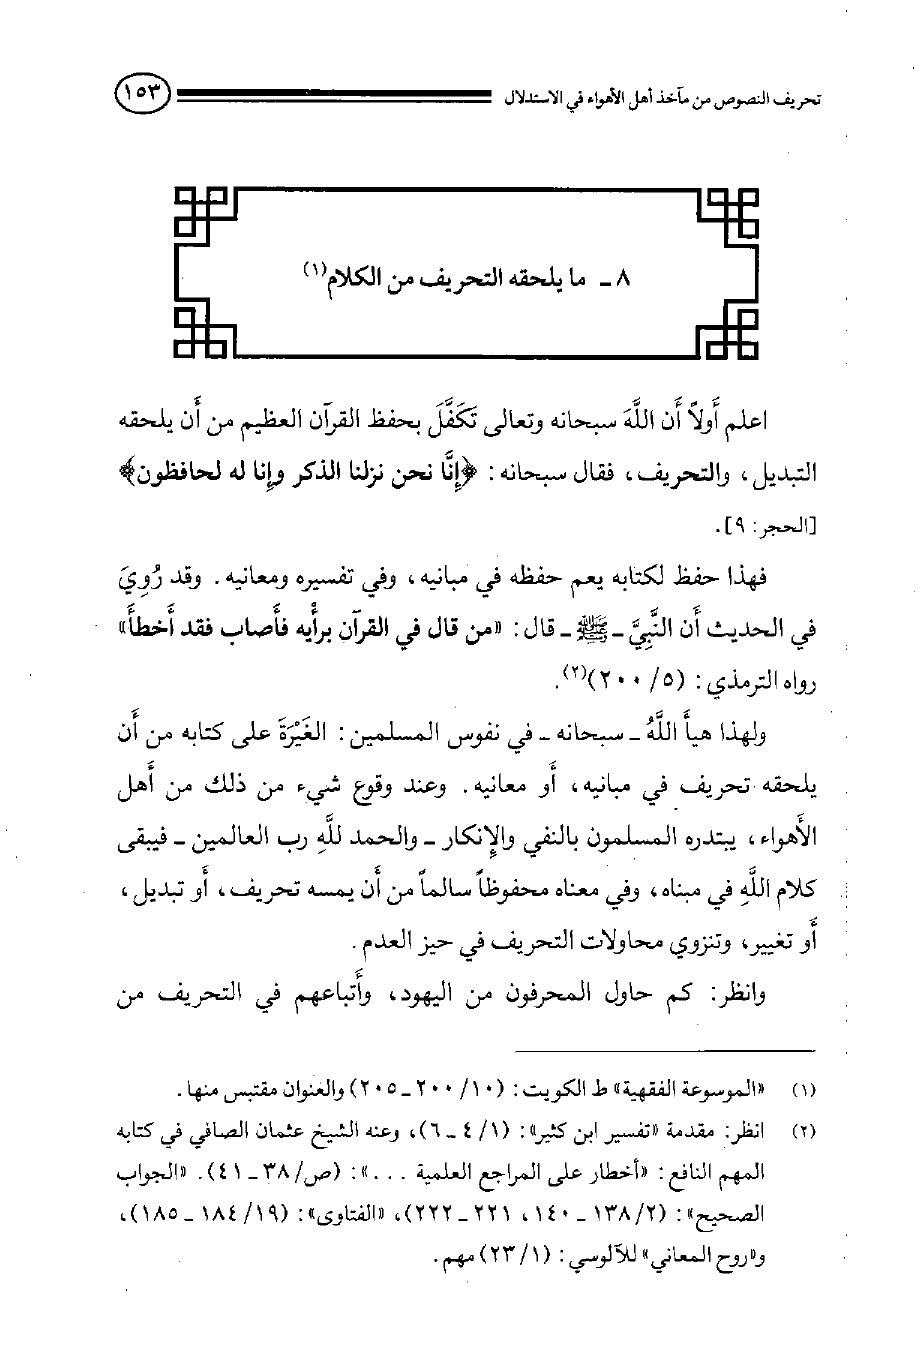 تحريف النصوص من مآخذ أهل الأهواء في الاستدلال ١٥٣
٨ ـ ما يلحقه التحريف من الكلام(١)
اعلم أَولاً أَن اللَّهَ سبحانه وتعالى تَكَفَّلَ بحفظ القرآن العظيم من أَن يلحقه
التبديل، والتحريف، فقال سبحانه: ﴿إِنَّا نحن نزلنا الذكر وإِنا له لحافظون﴾
[الحجر: ٩].
فهذا حفظ لكتابه يعم حفظه في مبانيه، وفي تفسيره ومعانيه. وقد رُوِيَ
في الحديث أَن النَّبِيَّ ـ ﷺ ـ قال: «من قال في القرآن برأْيه فأَصاب فقد أَخطأَ»
رواه الترمذي: (٥/ ٢٠٠)(٢).
ولهذا هيأَ اللَّهُ ـ سبحانه ـ في نفوس المسلمين: الغَيْرَةَ على كتابه من أَن
يلحقه تحريف في مبانيه، أَو معانيه. وعند وقوع شيء من ذلك من أَهل
الأَهواء، يبتدره المسلمون بالنفي والإِنكار ـ والحمد للَّهِ رب العالمين ـ فيبقى
كلام اللَّهِ في مبناه، وفي معناه محفوظاً سالماً من أَن يمسه تحريف، أَو تبديل،
أَو تغيير، وتنزوي محاولات التحريف في حيز العدم.
وانظر: كم حاول المحرفون من اليهود، وأَتباعهم في التحريف من
(١) «الموسوعة الفقهية» ط الكويت: (١٠/ ٢٠٠ ـ ٢٠٥) والعنوان مقتبس منها.
(٢) انظر: مقدمة «تفسير ابن كثير»: (١/ ٤ ـ ٦)، وعنه الشيخ عثمان الصافي في كتابه
المهم النافع: «أخطار على المراجع العلمية ...»: (ص/ ٣٨ ـ ٤١). «الجواب
الصحيح»: (٢/ ١٣٨ ـ ١٤٠، ٢٢١ ـ ٢٢٢)، «الفتاوى»: (١٩/ ١٨٤ ـ ١٨٥)،
و«روح المعاني» للآلوسي: (١/ ٢٣) مهم.